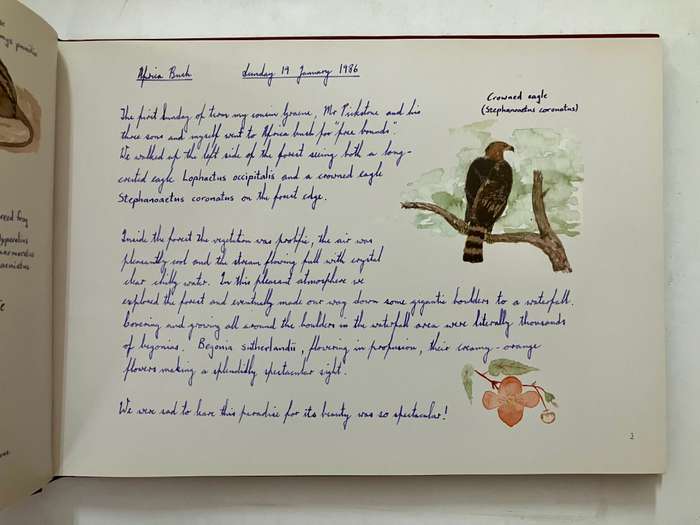 Africa Bush Sunday 19 January 1986
Crowned eagle
(Stephanoaetus coronatus)
The first Sunday of term my cousin Graeme, Mr Pickstone and his
three sons and myself went to Africa bush for "free bounds".
We walked up the left side of the forest seeing both a long-
crested eagle Lophaetus occipitalis and a crowned eagle
Stephanoaetus coronatus on the forest edge.
Inside the forest the vegetation was prolific, the air was
pleasantly cool and the stream flowing full with crystal
clear chilly water. In this pleasant atmosphere we
explored the forest and eventually made our way down some gigantic boulders to a waterfall.
Covering and growing all around the boulders in the waterfall area were literally thousands
of begonias. Begonia sutherlandii, flowering in profusion, their creamy-orange
flowers making a splendidly spectacular sight.
We were sad to leave this paradise for its beauty was so spectacular!